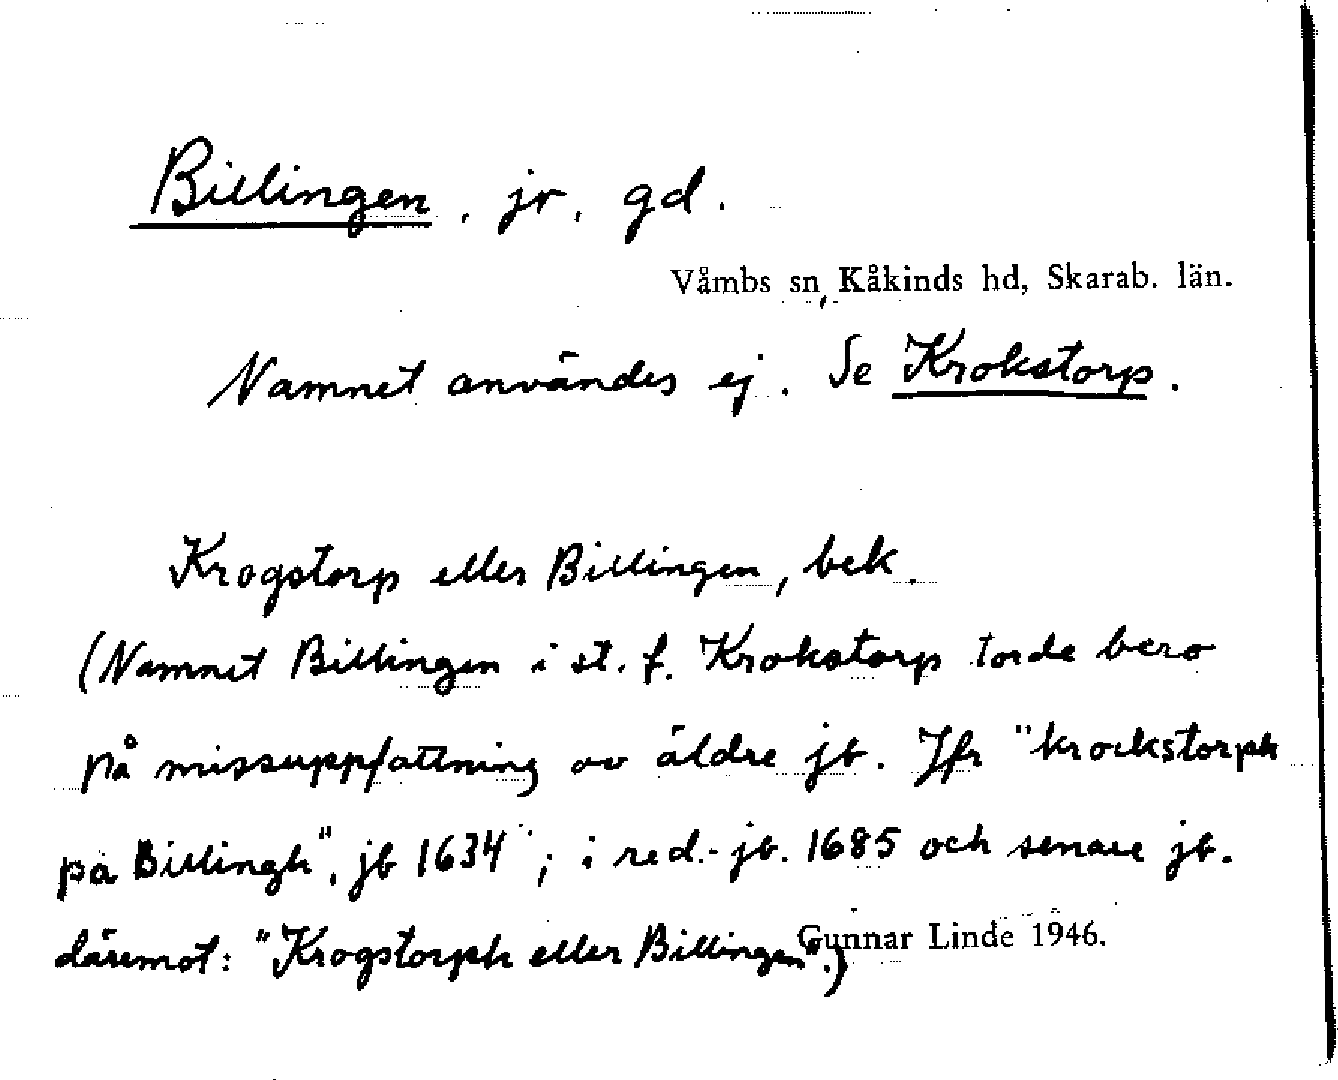 Billingen, jr, gd.
Våmbs sn, Kåkinds hd, Skarab. län.
Namnet användes ej. Se Krokstorp.
Krogstorp eller Billingen, bek.
(Namnet Billingen i st. f. Krokstorp torde bero
på missuppfattning av äldre jb. Jfr "krockstorph
på Billingh", jb 1634; i red.-jb. 1685 och senare jb.
däremot: "Krogstorph eller Billingen".)
Gunnar Linde 1946.